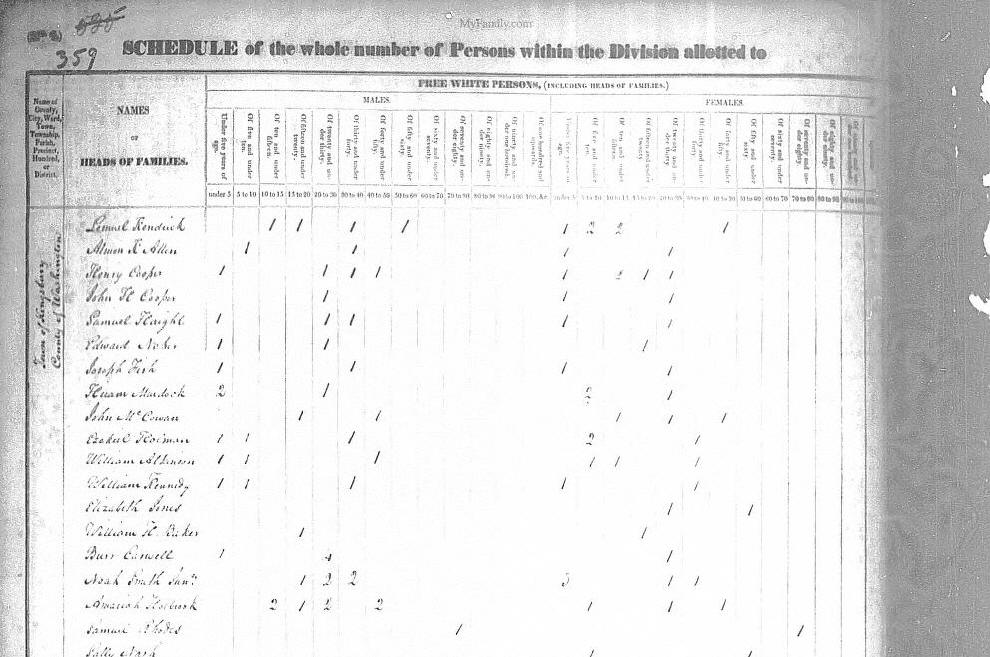 MyFamily.com
359
SCHEDULE of the whole number of Persons within the Division allotted to
FREE WHITE PERSONS, (INCLUDING HEADS OF FAMILIES.)
MALES. FEMALES.
Name of County, City, Ward, Town, Township, Parish, Precinct, Hundred, or District.
NAMES
OF
HEADS OF FAMILIES.
Under five years of age. Of five and under ten. Of ten and under fifteen. Of fifteen and under twenty. Of twenty and under thirty. Of thirty and under forty. Of forty and under fifty. Of fifty and under sixty. Of sixty and under seventy. Of seventy and under eighty. Of eighty and under ninety. Of ninety and under one hundred. Of one hundred and upwards. Under five years of age. Of five and under ten. Of ten and under fifteen. Of fifteen and under twenty. Of twenty and under thirty. Of thirty and under forty. Of forty and under fifty. Of fifty and under sixty. Of sixty and under seventy. Of seventy and under eighty. Of eighty and under ninety.
under 5 5 to 10 10 to 15 15 to 20 20 to 30 30 to 40 40 to 50 50 to 60 60 to 70 70 to 80 80 to 90 90 to 100 100, &c. under 5 5 to 10 10 to 15 15 to 20 20 to 30 30 to 40 40 to 50 50 to 60 60 to 70 70 to 80 80 to 90 90 to 100
Town of Kingsbury
County of Washington
Lemuel Kendrick 1 1 1 1 1 2 2 1
Almon K Allen 1 1 1 1
Henry Cooper 1 1 1 1 1 2 1 1
John H Cooper 1 1 1
Samuel Haight 1 1 1 1 1
Edward 1 1 1
Joseph Fish 1 1 1 1
Hiram Murdock 2 1 2 1
John McCowan 1 1 1 1 1
Ezekiel 1 1 1 2 1
William Atkinson 1 1 1 1 1 1
William Kennedy 1 1 1 1 1
Elizabeth Jones 1 1
William H. Baker 1 1
Burr 1 4 1
Noah Smith Junr 1 2 2 3 1 1
Amariah Holbrook 2 1 2 2 1 1 1
Samuel Rhodes 1 1
Sally Nash 1 1